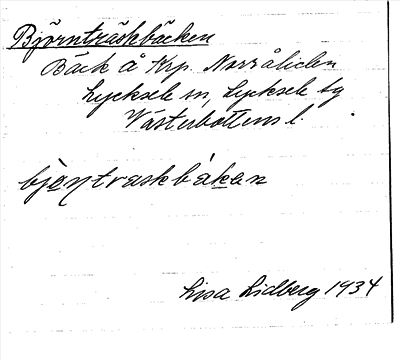 Björnträskbäcken
Bäck å Krp. Norråliden
Lycksele sn, Lycksele tg
Västerbottens l.
bjœṇtraskbäkan
Lisa Lidberg 1934